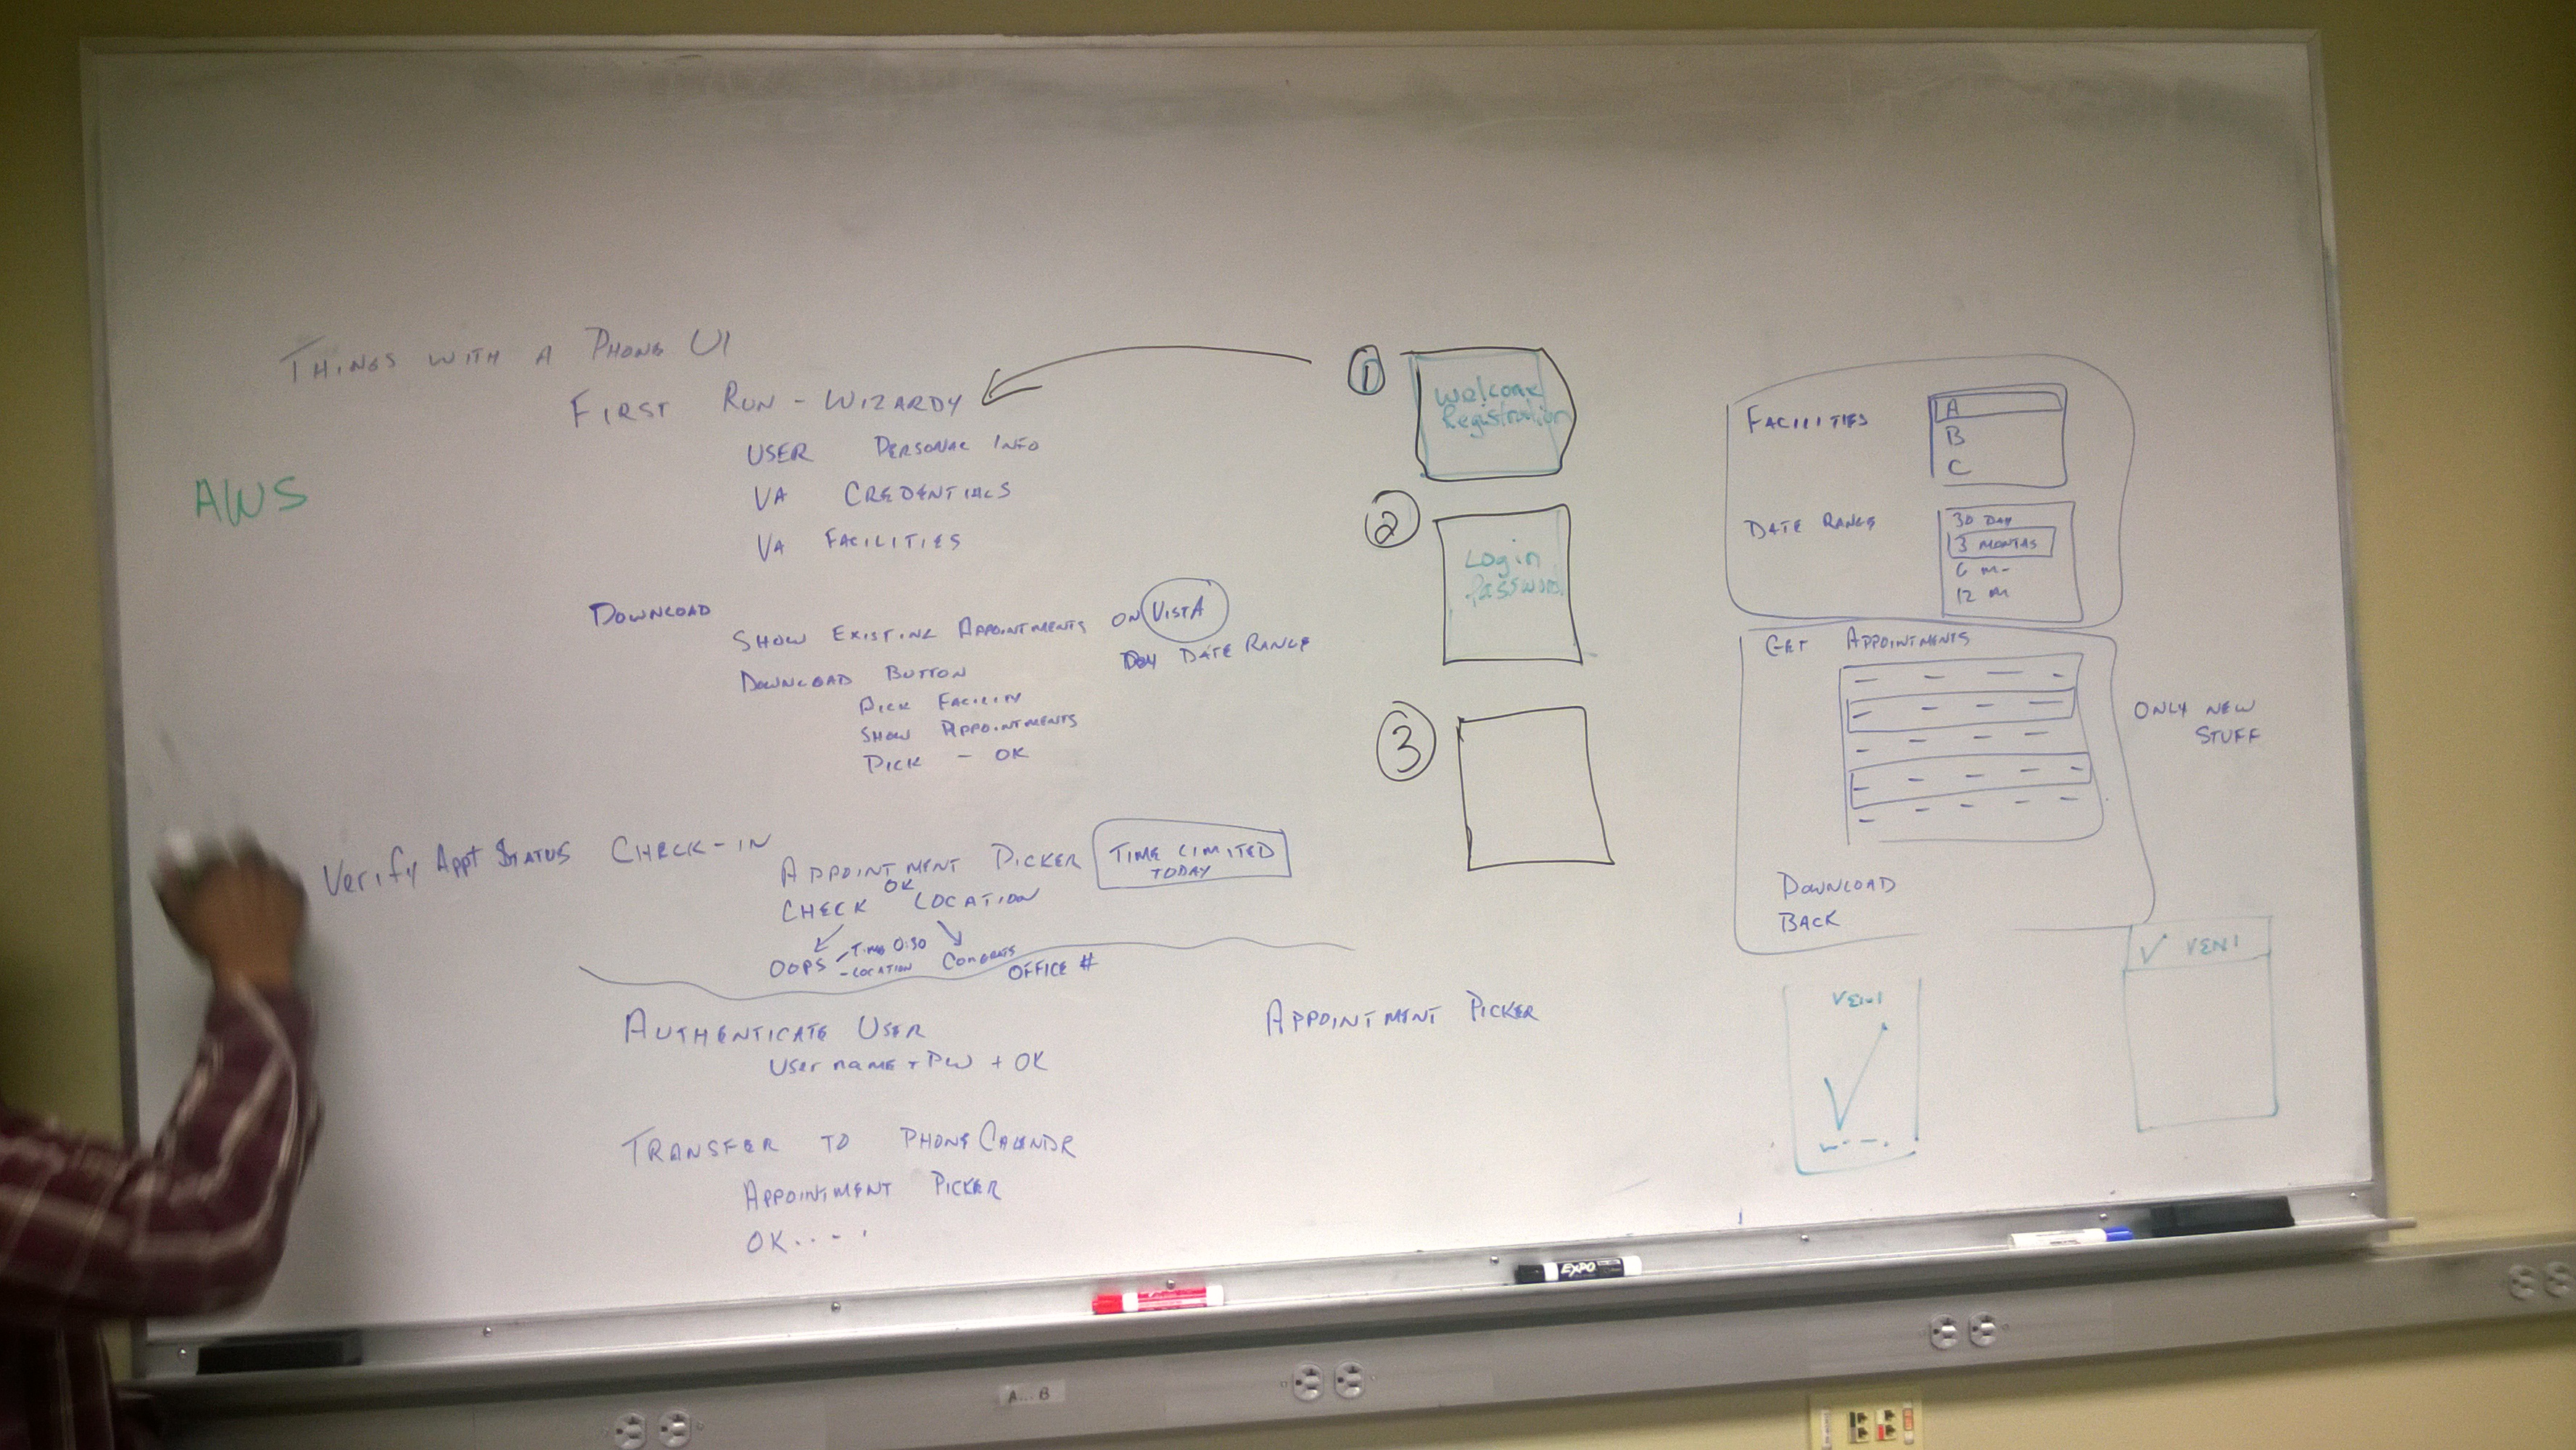 THINGS WITH A PHONE UI
FIRST RUN - WIZARDY
USER PERSONAL INFO
VA CREDENTIALS
VA FACILITIES
AWS
DOWNLOAD
SHOW EXISTING APPOINTMENTS ON VISTA
DATE RANGE
DOWNLOAD BUTTON
PICK FACILITY
SHOW APPOINTMENTS
PICK - OK
Verify Appt STATUS CHECK-IN
APPOINTMENT PICKER TIME LIMITED
TODAY
OK
CHECK LOCATION
OOPS - TIME 0:30
- LOCATION
CONGRATS
OFFICE #
AUTHENTICATE USER
User name + PW + OK
TRANSFER TO PHONE CALENDR
APPOINTMENT PICKER
OK....
1
Welcome
Registration
2
Login
Password
3
APPOINTMENT PICKER
FACILITIES
A
B
C
DATE RANGE
30 DAY
3 MONTHS
6 M-
12 M
GET APPOINTMENTS
ONLY NEW
STUFF
DOWNLOAD
BACK
VENI
✓ VENI
EXPO
A...B